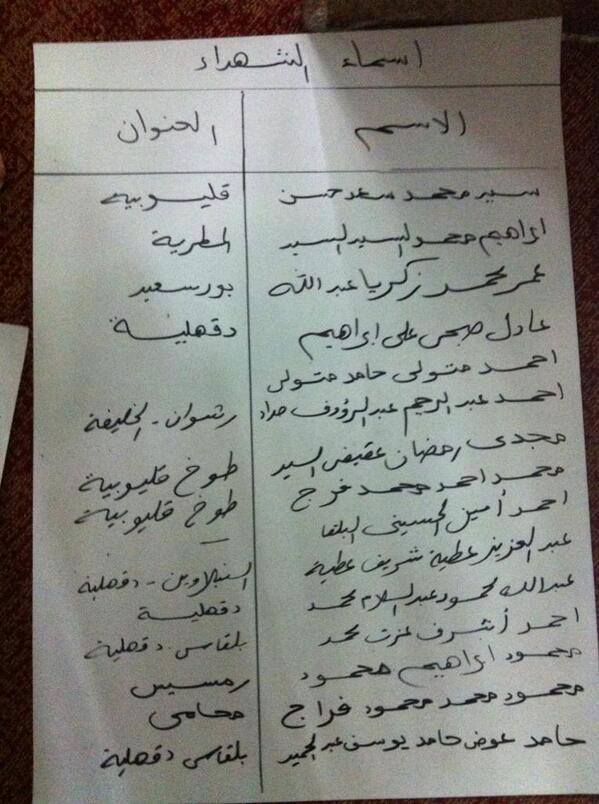 اسماء الشهداء
الاسم العنوان
سيد محمد سعد حسن قليوبيه
ابراهيم محمد السيد السيد المطرية
عمر محمد زكريا عبد الله بورسعيد
عادل صبحى على ابراهيم دقهلية
احمد متولى حامد متولى
احمد عبد الرحيم عبد الرؤوف رشوان - الخليفة
مجدى رمضان عفيفى السيد
محمد احمد محمد فراج طوخ قليوبية
احمد أمين الحسينى طوخ قليوبية
عبد العزيز عطية شريف عطية –
عبد الله محمود عبد السلام محمد السنبلاوين - دقهلية
احمد أشرف عزت محمد دقهلية
محمود ابراهيم محمود بلقاس دقهلية
محمود محمد محمود فراج رمسيس
محامى
حامد عوض حامد يوسف عبد الحميد بلقاس دقهلية